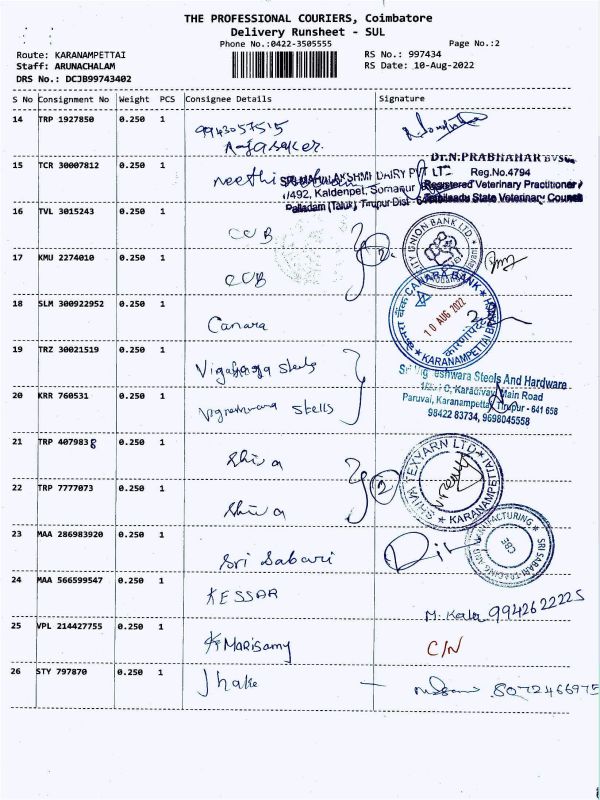 THE PROFESSIONAL COURIERS, Coimbatore
Delivery Runsheet - SUL
Phone No.:0422-3505555 Page No.:2
Route: KARANAMPETTAI RS No.: 997434
Staff: ARUNACHALAM RS Date: 10-Aug-2022
DRS No.: DCJB99743402
S No Consignment No Weight PCS Consignee Details Signature
14 TRP 1927850 0.250 1 9943057515
Dr.N.PRABHAHAR BVSc
15 TCR 30007812 0.250 1 neethi SRI MAHALAKSHMI DAIRY PVT LTD Reg.No.4794
1/492, Kaldenpel, Somanur Registered Veterinary Practitioner
Palladam (Taluk) Tirupur Dist Tamilnadu State Veterinary Council
16 TVL 3015243 0.250 1 CUB 2 CITY UNION BANK LTD
17 KMU 2274010 0.250 1 CUB
18 SLM 300922952 0.250 1 Canara CANARA BANK 10 AUG 2022 KARANAMPETTAI BRANCH
19 TRZ 30021519 0.250 1 Steels
Steels And Hardware
Main Road
20 KRR 760531 0.250 1 Vigneshwara Steels
Paruvai, Karanampettai, Tirupur - 641 658
98422 83734, 9698045558
21 TRP 4079838 0.250 1 Shiva 2 SHIVA TEXYARN LTD KARANAMPETTAI
22 TRP 7777073 0.250 1 Shiva
23 MAA 286983920 0.250 1 Sri Sabari CBE
24 MAA 566599547 0.250 1 KESSAR M. Kala 9942622225
25 VPL 214427755 0.250 1 K Marisamy C/N
26 STY 797870 0.250 1 Jhake — 8072466975